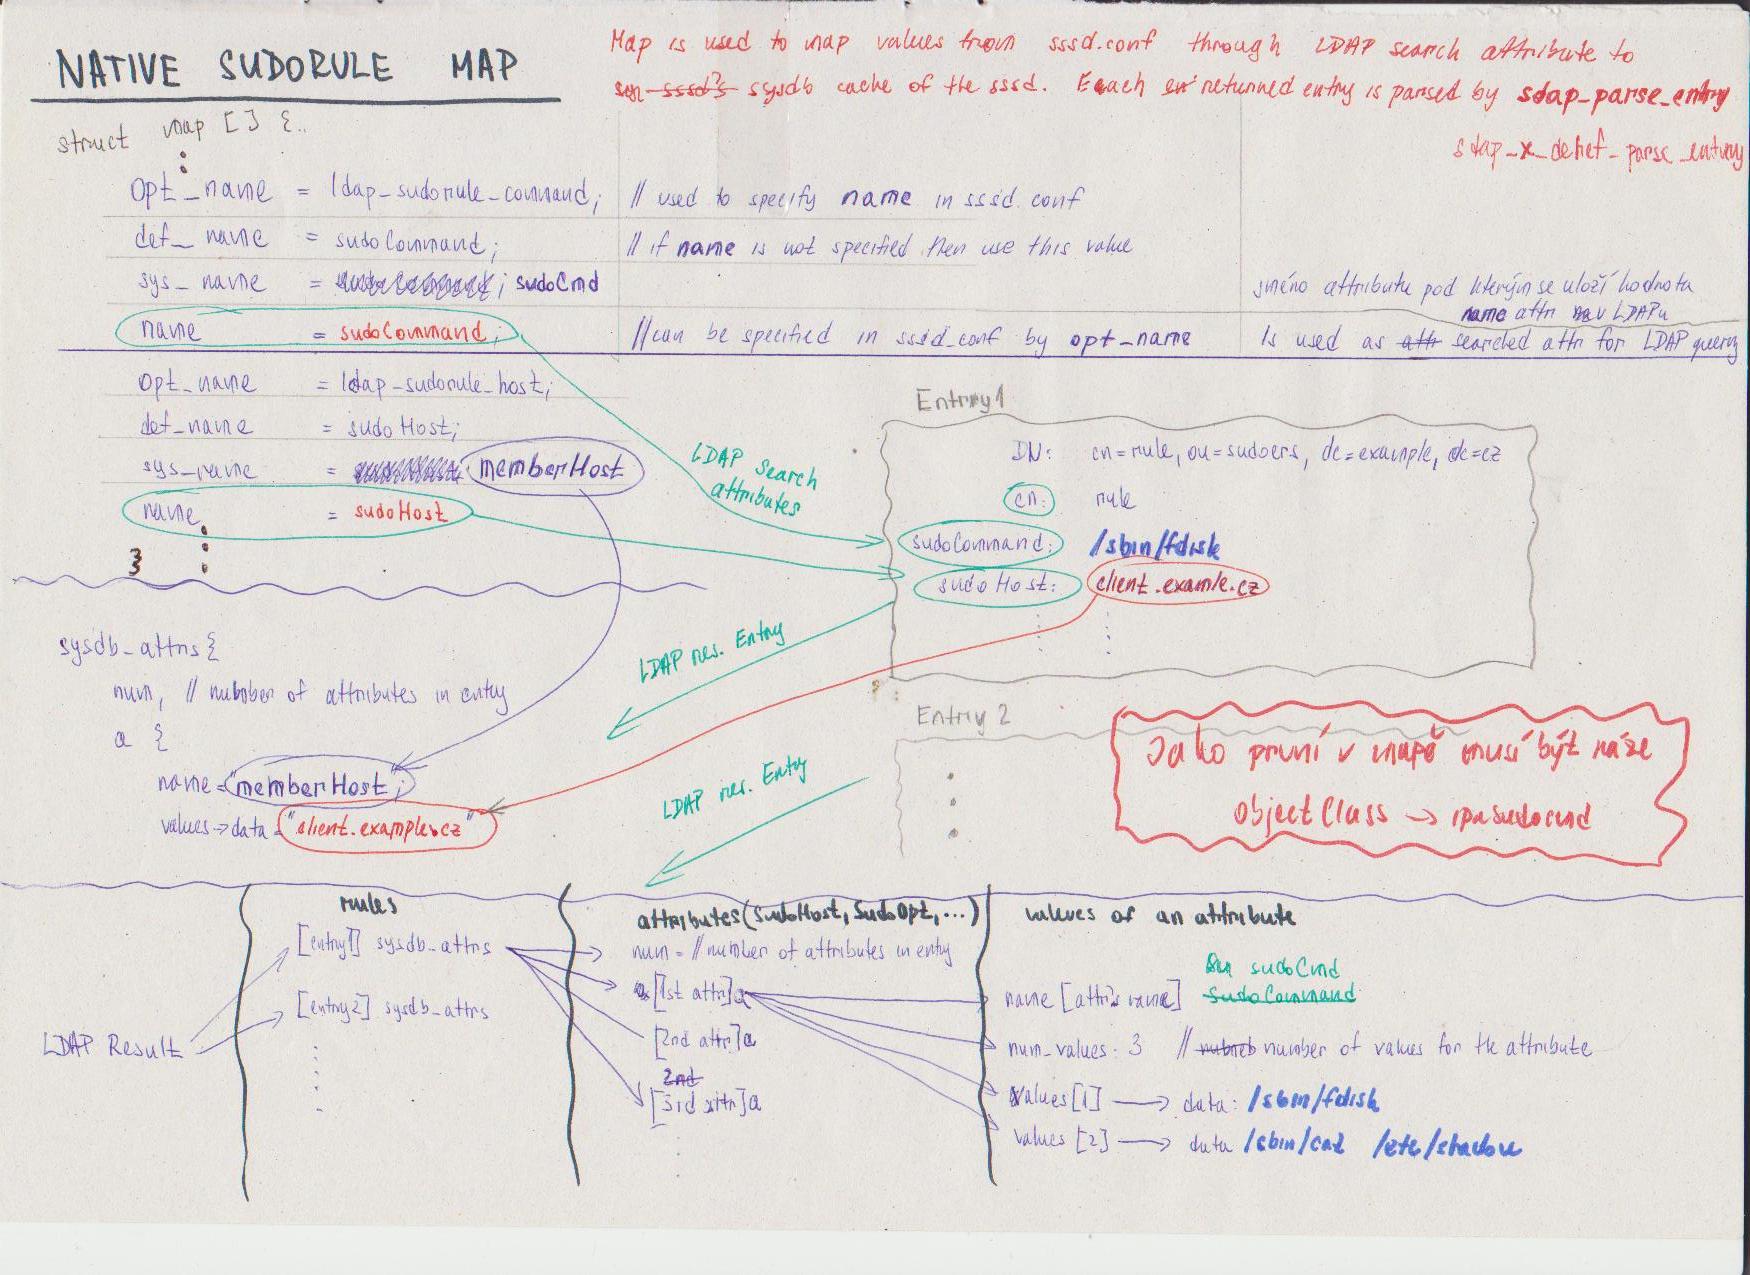 NATIVE SUDORULE MAP
Map is used to map values from sssd.conf through LDAP search attribute to
sysdb cache of the sssd. Each returned entry is parsed by sdap_parse_entry
sdap_x_deref_parse_entry
struct map [] {..
opt_name = ldap_sudorule_command; // used to specify name in sssd.conf
def_name = sudoCommand; // if name is not specified then use this value
sys_name = ; sudoCmd
jméno attributu pod kterým se uloží hodnota
name attr v LDAPu
name = sudoCommand; //can be specified in sssd_conf by opt_name Is used as attr searched attr for LDAP query
opt_name = ldap_sudorule_host;
def_name = sudoHost;
sys_name = memberHost
name = sudoHost
}
LDAP Search
attributes
Entry1
DN: cn=rule, ou=sudoers, dc=example, dc=cz
cn: rule
sudoCommand: /sbin/fdisk
sudoHost: client.examle.cz
LDAP res. Entry
sysdb_attrs {
num, // nubmber of attributes in entry
a {
name="memberHost";
values->data="client.example.cz"
LDAP res. Entry
Entry 2
Jako první v mapě musí být naše
ObjectClass → ipasudocmd
rules
attributes(SudoHost, SudoOpt, ...)
values of an attribute
[entry1] sysdb_attrs
num = //number of attributes in entry
sudoCmd
SudoCommand
[entry2] sysdb_attrs
[1st attr]a
name [attr's name]
LDAP Result
[2nd attr]a
num_values: 3 // number of values for the attribute
2nd
[3rd attr]a
values[1] → data: /sbin/fdisk
values [2] → data /sbin/cat /etc/shadow